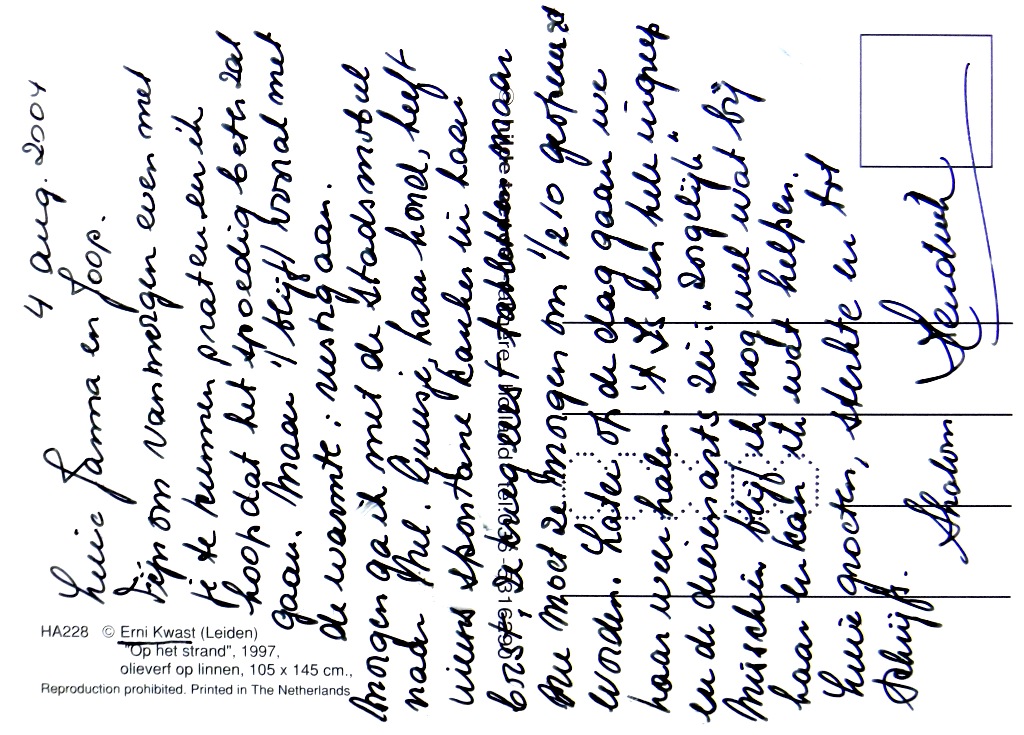 4 aug. 2004
Lieve Janna en Joop.
Fijn om vanmorgen even met
je te kunnen praten en ik
hoop dat het spoedig beter zal
gaan. Maar 't blijft vooral met
de warmte: rustig aan.
Morgen ga ik met de stadsmobiel
naar Mul. Guusje, haar hond, heeft
ineens spontane kanker in haar
borst
maar
moet ze morgen om 1/2 10 geopereerd
worden. Later op de dag gaan we
haar weer halen. 't Is een hele ingreep
en de dierenarts zei: "Zorgelijk"
Misschien blijf ik nog wel wat bij
haar en kan ik wat helpen.
Lieve groeten, sterkte en tot
schrijfs.
Shalom
HA228 © Erni Kwast (Leiden)
"Op het strand", 1997,
olieverf op linnen, 105 x 145 cm.,
Reproduction prohibited. Printed in The Netherlands